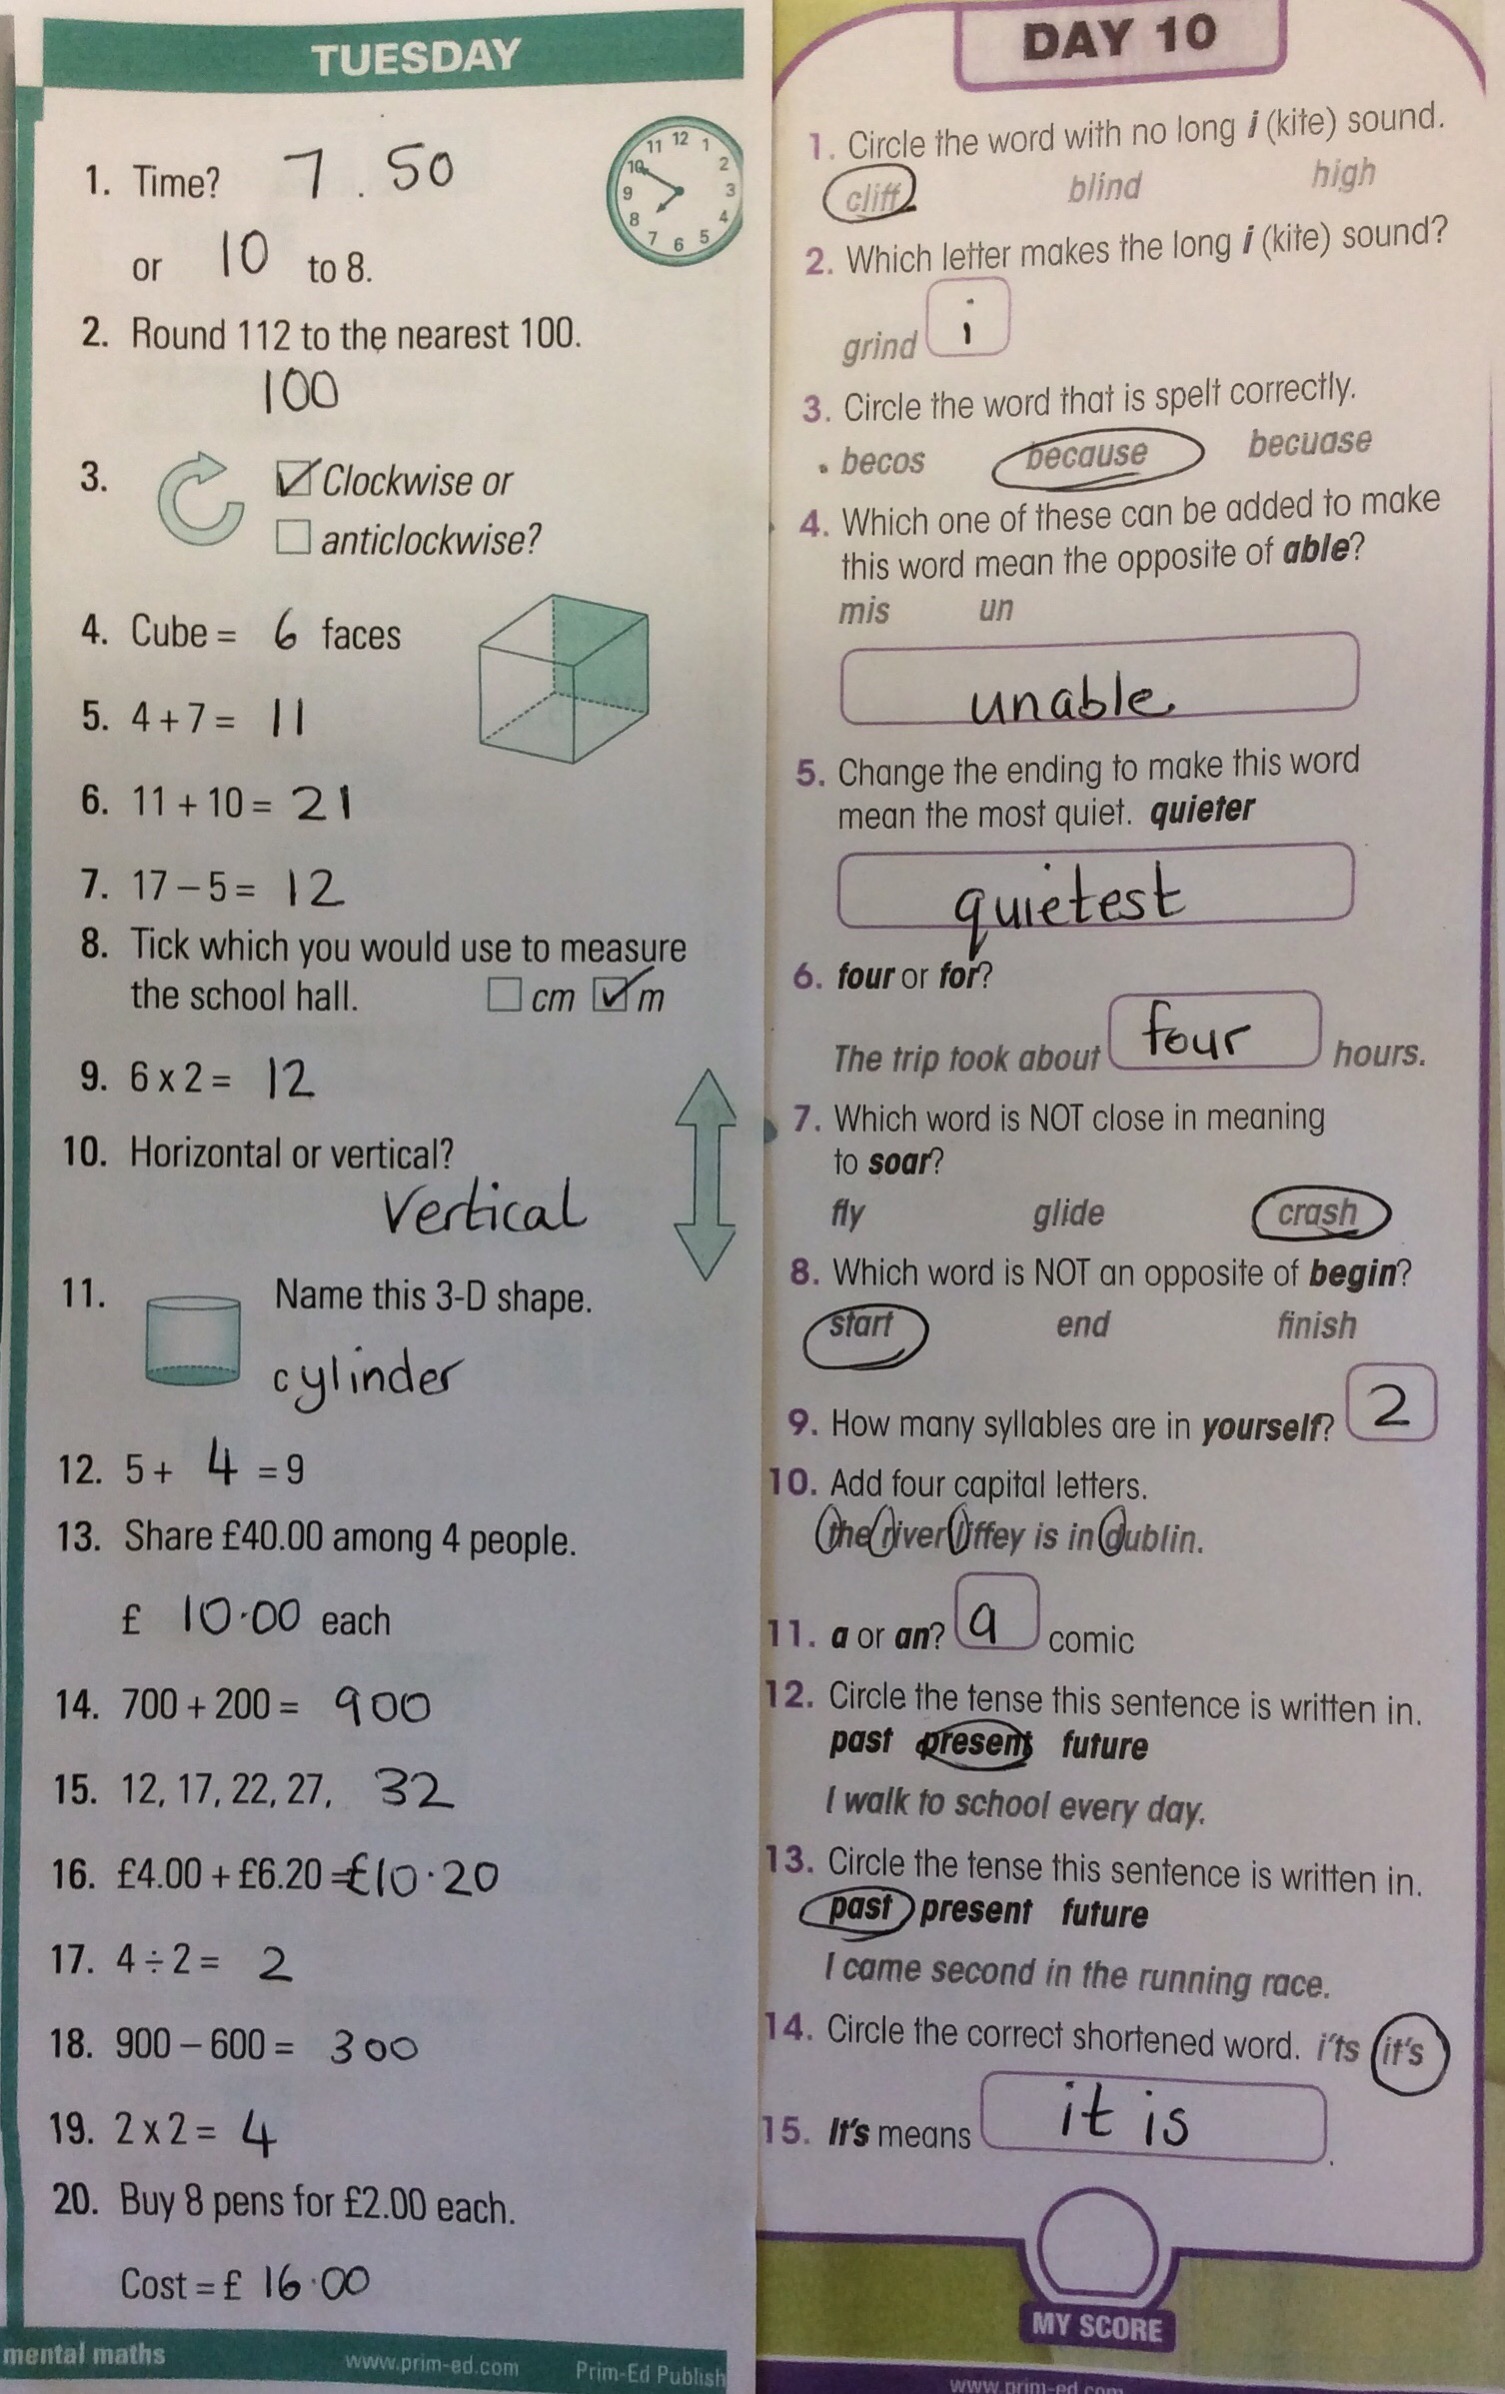 TUESDAY
1. Time? 7.50
or 10 to 8.
12 1 2 3 4 5 6 7 8 9 10 11
2. Round 112 to the nearest 100.
100
3. Clockwise or
anticlockwise?
4. Cube = 6 faces
5. 4 + 7 = 11
6. 11 + 10 = 21
7. 17 – 5 = 12
8. Tick which you would use to measure
the school hall. cm m
9. 6 x 2 = 12
10. Horizontal or vertical?
Vertical
11. Name this 3-D shape.
cylinder
12. 5 + 4 = 9
13. Share £40.00 among 4 people.
£ 10·00 each
14. 700 + 200 = 900
15. 12, 17, 22, 27, 32
16. £4.00 + £6.20 = £10·20
17. 4 ÷ 2 = 2
18. 900 – 600 = 300
19. 2 x 2 = 4
20. Buy 8 pens for £2.00 each.
Cost = £ 16·00
mental maths www.prim-ed.com Prim-Ed Publish
DAY 10
1. Circle the word with no long i (kite) sound.
cliff blind high
2. Which letter makes the long i (kite) sound?
grind i
3. Circle the word that is spelt correctly.
becos because becuase
4. Which one of these can be added to make
this word mean the opposite of able?
mis un
unable
5. Change the ending to make this word
mean the most quiet. quieter
quietest
6. four or for?
The trip took about four hours.
7. Which word is NOT close in meaning
to soar?
fly glide crash
8. Which word is NOT an opposite of begin?
start end finish
9. How many syllables are in yourself? 2
10. Add four capital letters.
the river liffey is in dublin.
11. a or an? a comic
12. Circle the tense this sentence is written in.
past present future
I walk to school every day.
13. Circle the tense this sentence is written in.
past present future
I came second in the running race.
14. Circle the correct shortened word. i'ts it's
15. It's means it is.
MY SCORE
www.prim-ed.com